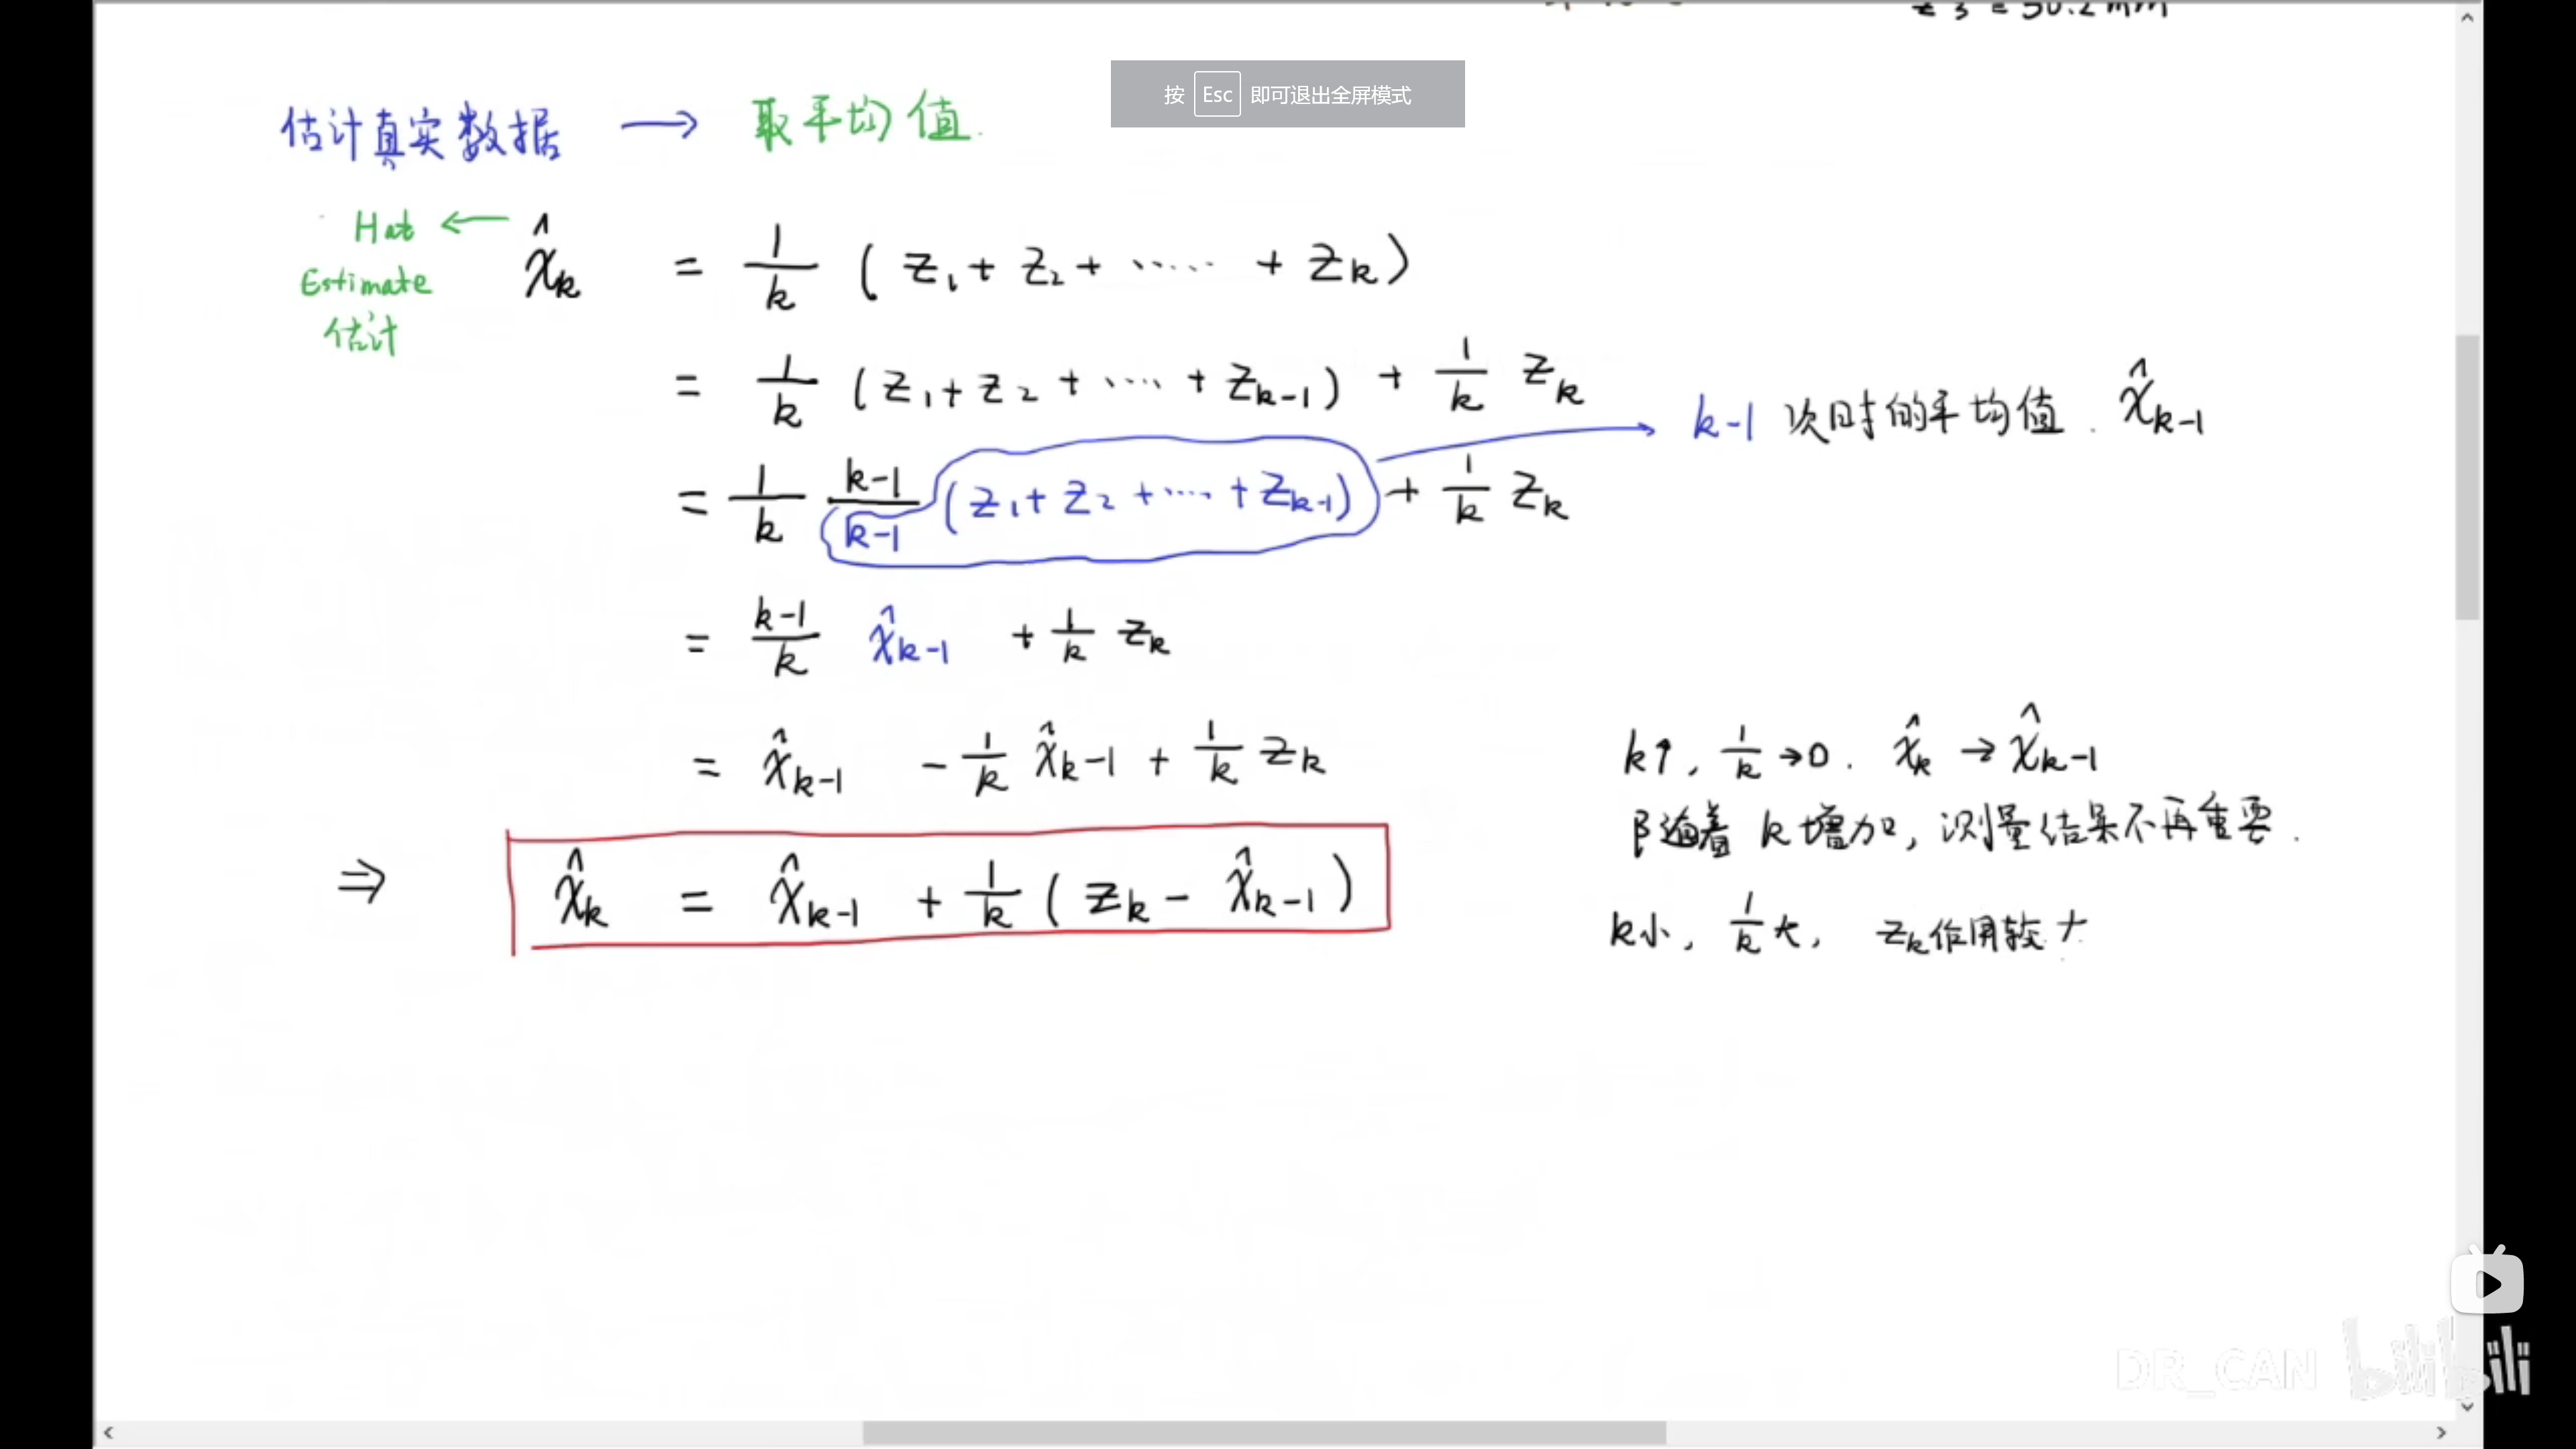 z3 = 50.2 mm
按 Esc 即可退出全屏模式
估计真实数据 → 取平均值.
Hat ← x̂k = 1/k ( z1 + z2 + ····· + zk )
Estimate
估计
= 1/k ( z1 + z2 + ···· + zk-1 ) + 1/k zk
= 1/k k-1/k-1 ( z1 + z2 + ···· + zk-1 ) + 1/k zk → k-1 次时的平均值. x̂k-1
= k-1/k x̂k-1 + 1/k zk
= x̂k-1 - 1/k x̂k-1 + 1/k zk
⇒ x̂k = x̂k-1 + 1/k ( zk - x̂k-1 )
k↑, 1/k → 0. x̂k → x̂k-1
随着 k 增加, 测量结果不再重要.
k小, 1/k 大, zk作用较大
DR_CAN bilibili